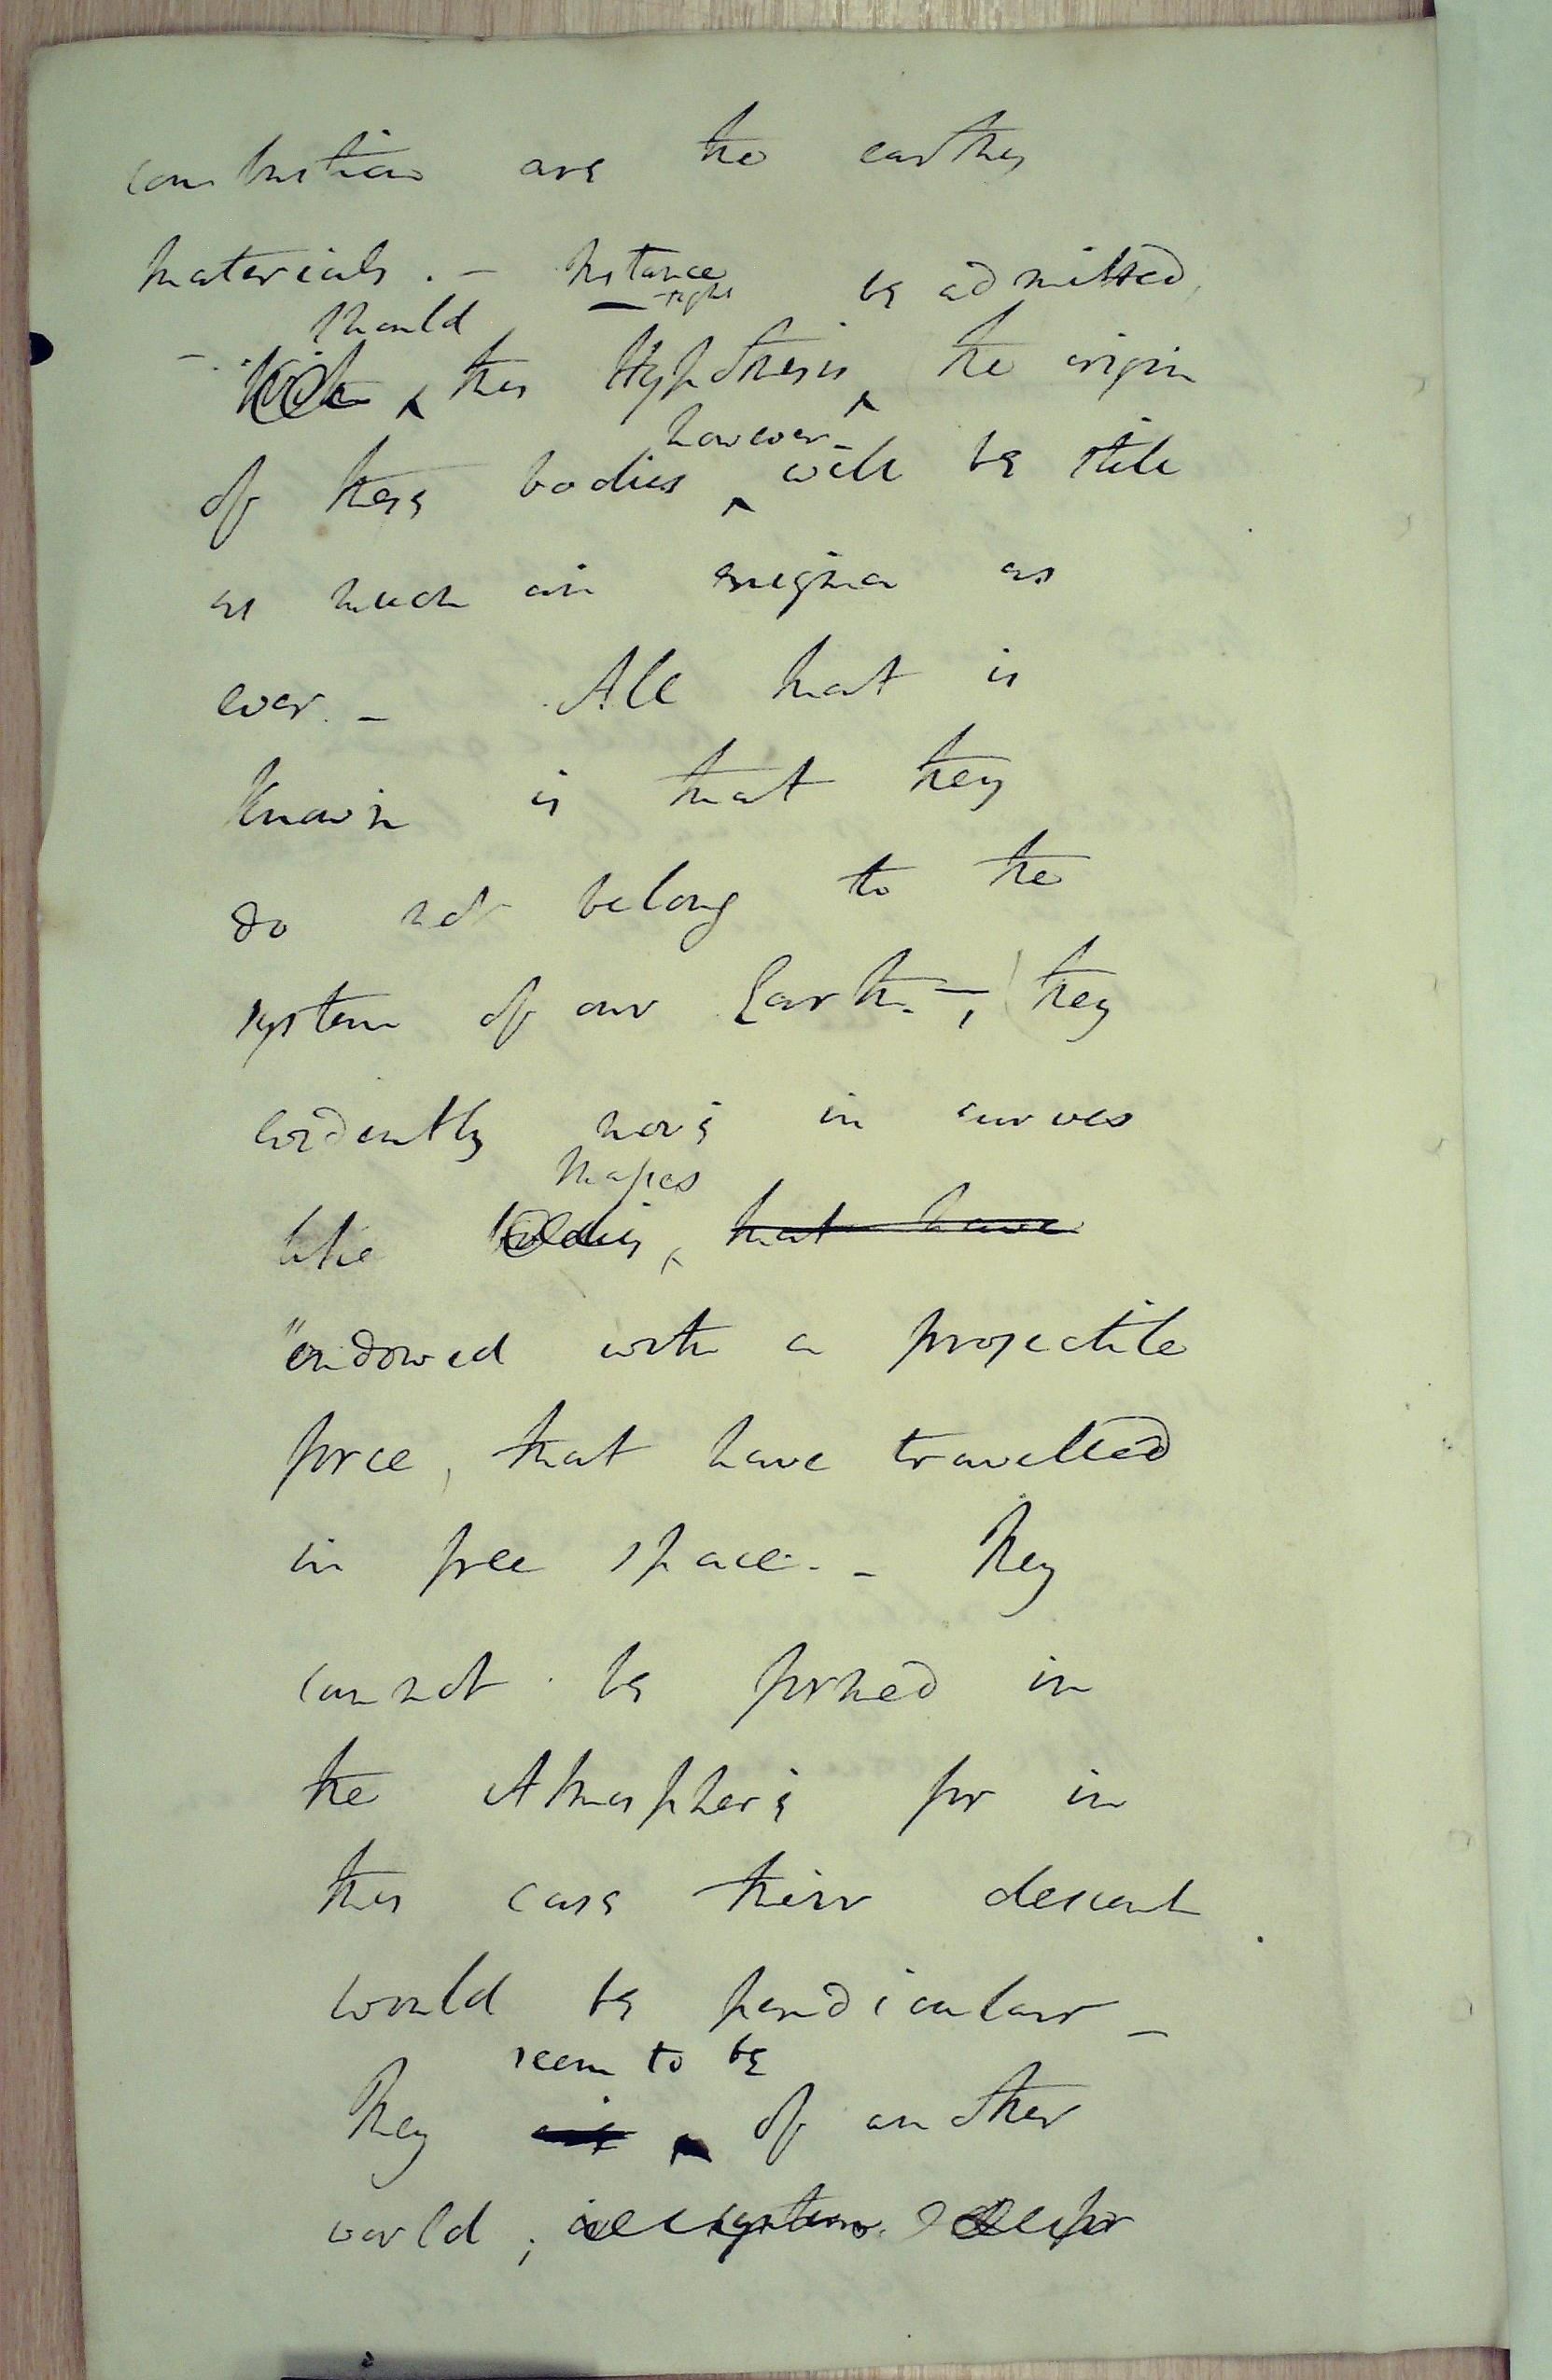 combustion are the earthy
materials. – 
be admitted,
should
this Hypothesis, the origin
however
of these bodies will be still
as much an enigma as
ever. – All that is
known is that they
do not belong to the
system of our Earth –, they
evidently move in curves
masses
like bodies, that have
endowed with a projectile
force, that have travelled
in free space. – They
cannot be formed in
the Atmosphere for in
this case their descent
would be pendicular –
seem to be
They are of another
world;